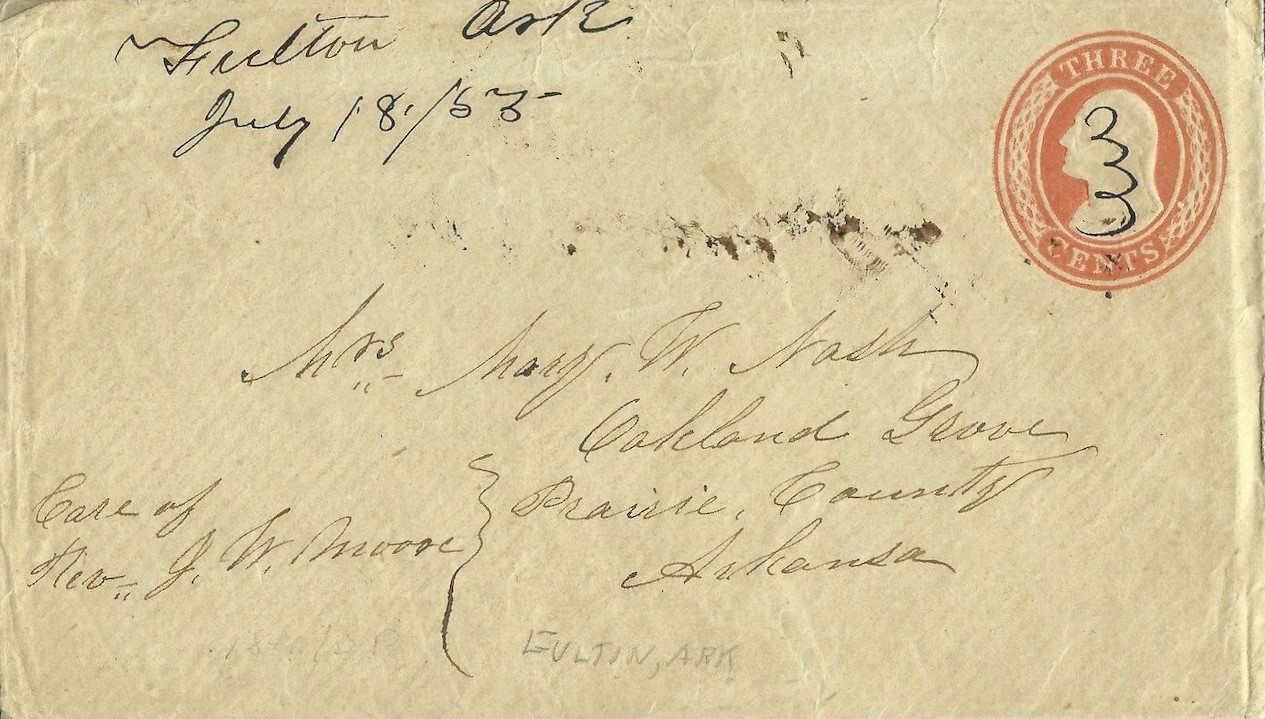 Fulton Ark
July 18/55
THREE
CENTS
Mrs Mary. W. Nash
Oakland Grove
Prairie, County
Arkansa
Care of
Rev J. W. Moore
FULTON, ARK